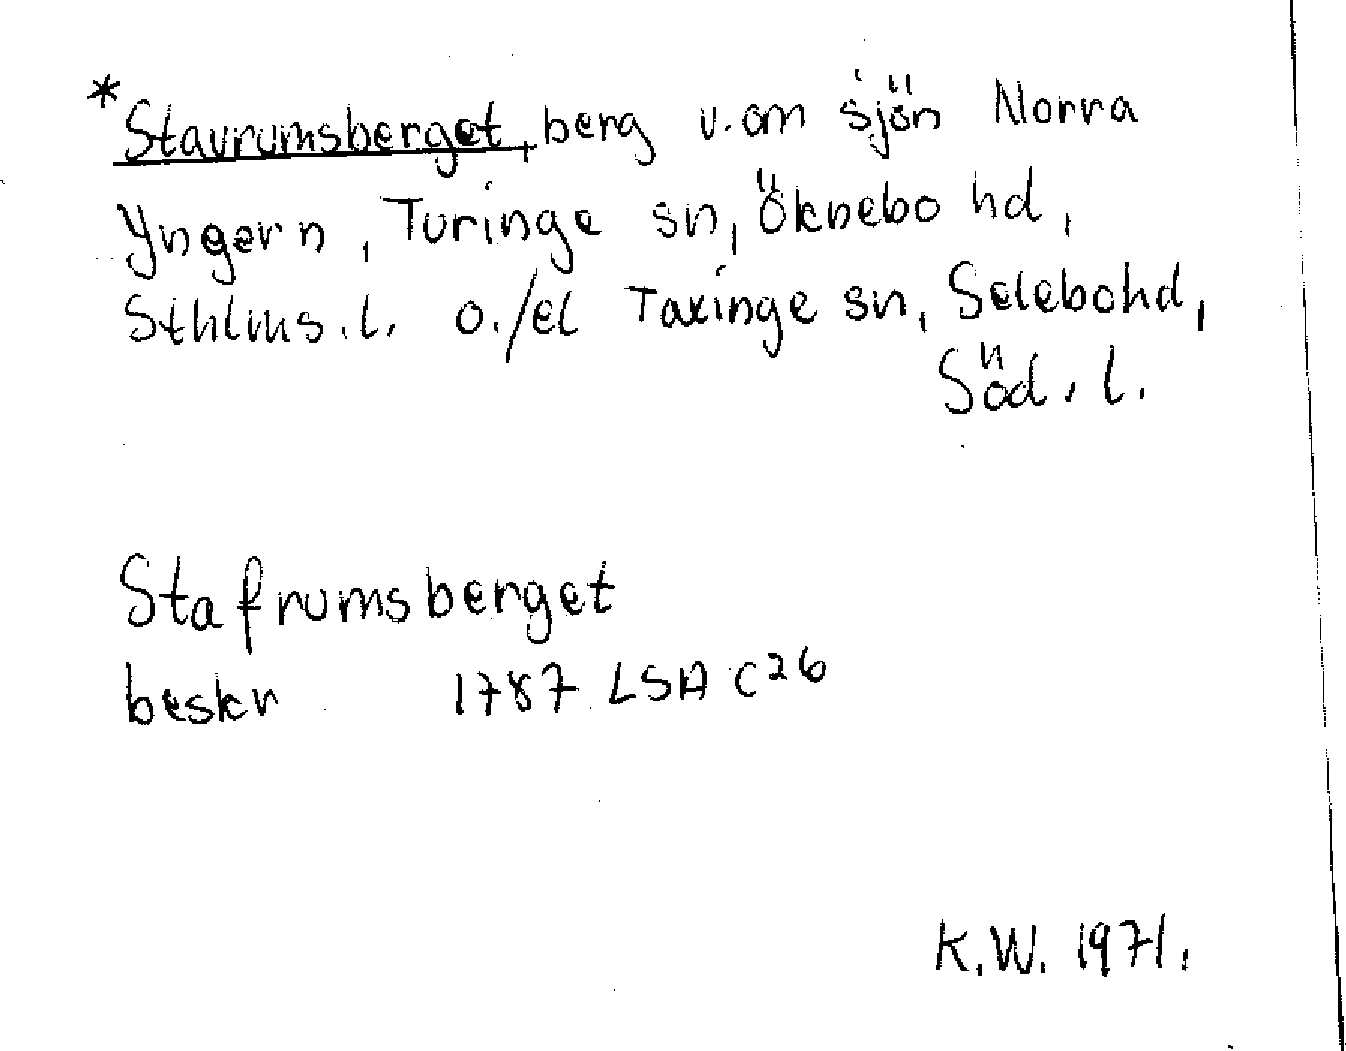 *Stavrumsberget, berg v. om sjön Norra
Yngern, Turinge sn, Öknebo hd,
Sthlms. l. o./el Taxinge sn, Selebo hd,
Söd. l.
Stafrumsberget
beskr 1787 LSA C26
K.W. 1971.